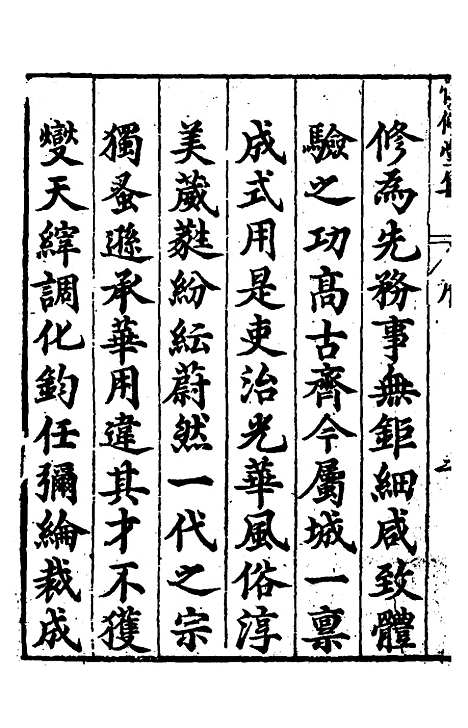 修為先務事無鉅細咸致體
驗之功髙古齊今屬城一稟
成式用是吏治光華風俗淳
美葳蕤紛紜蔚然一代之宗
獨蚤遜承華用違其才不獲
燮天縡調化鈞任彌綸裁成